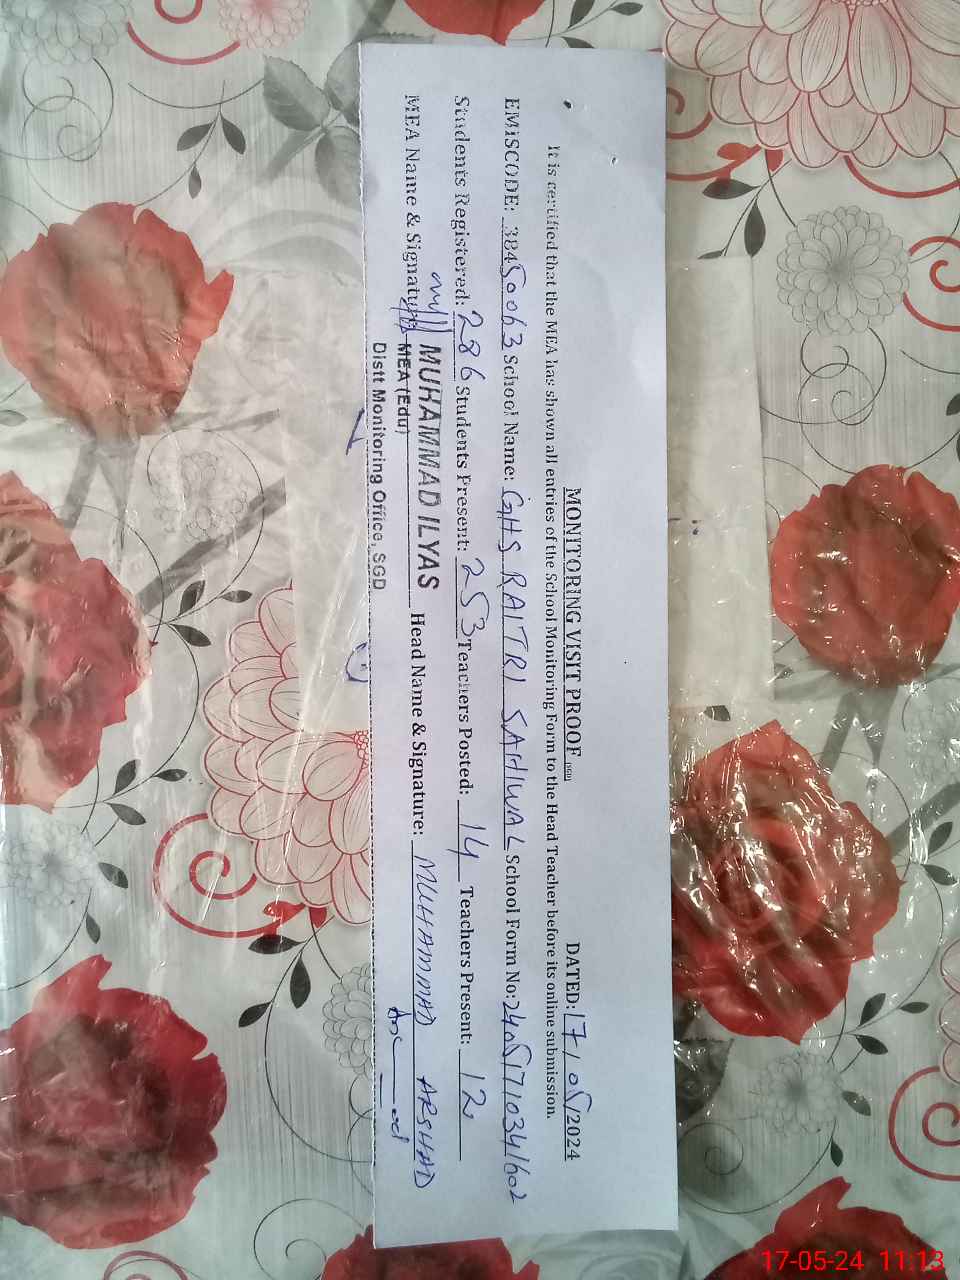 MONITORING VISIT PROOF (SGD) DATED: 17/05/2024
It is certified that the MEA has shown all entries of the School Monitoring Form to the Head Teacher before its online submission.
EMISCODE: 38450063 School Name: GHS RAITRI SAHIWAL School Form No: 24051710341602
Students Registered: 286 Students Present: 253 Teachers Posted: 14 Teachers Present: 12
MEA Name & Signature MUHAMMAD ILYAS Head Name & Signature: MUHAMMAD ARSHAD
MEA (Edu)
Distt Monitoring Office, SGD
17-05-24 11:13